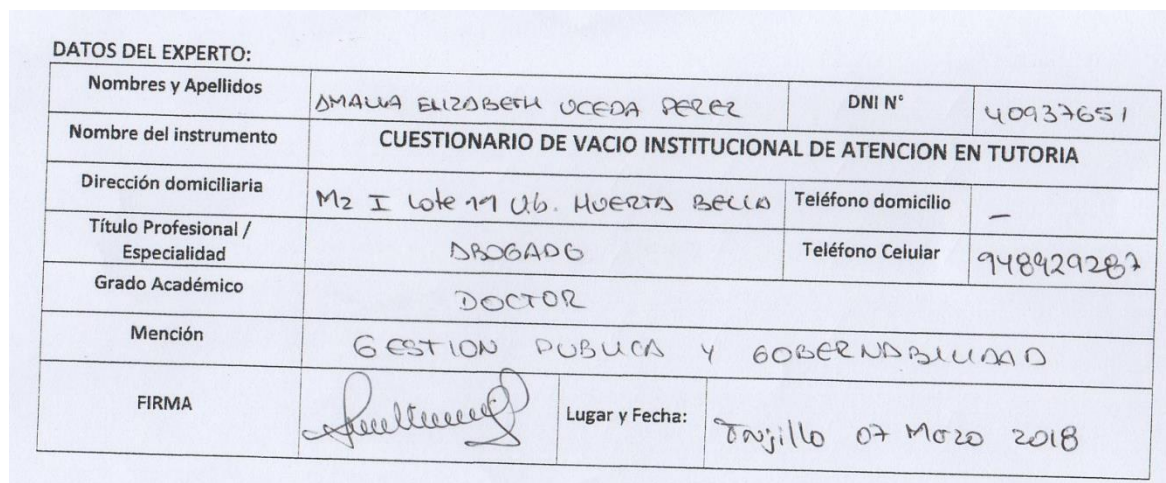 DATOS DEL EXPERTO:
Nombres y Apellidos AMALIA ELIZABETH UCEDA PEREZ DNI N° 40937651
Nombre del instrumento CUESTIONARIO DE VACIO INSTITUCIONAL DE ATENCION EN TUTORIA
Dirección domiciliaria Mz I Lote 11 Ub. HUERTA BELLA Teléfono domicilio –
Título Profesional /
Especialidad ABOGADO Teléfono Celular 948929287
Grado Académico DOCTOR
Mención GESTION PUBLICA Y GOBERNABILIDAD
FIRMA Lugar y Fecha: Trujillo 07 Marzo 2018